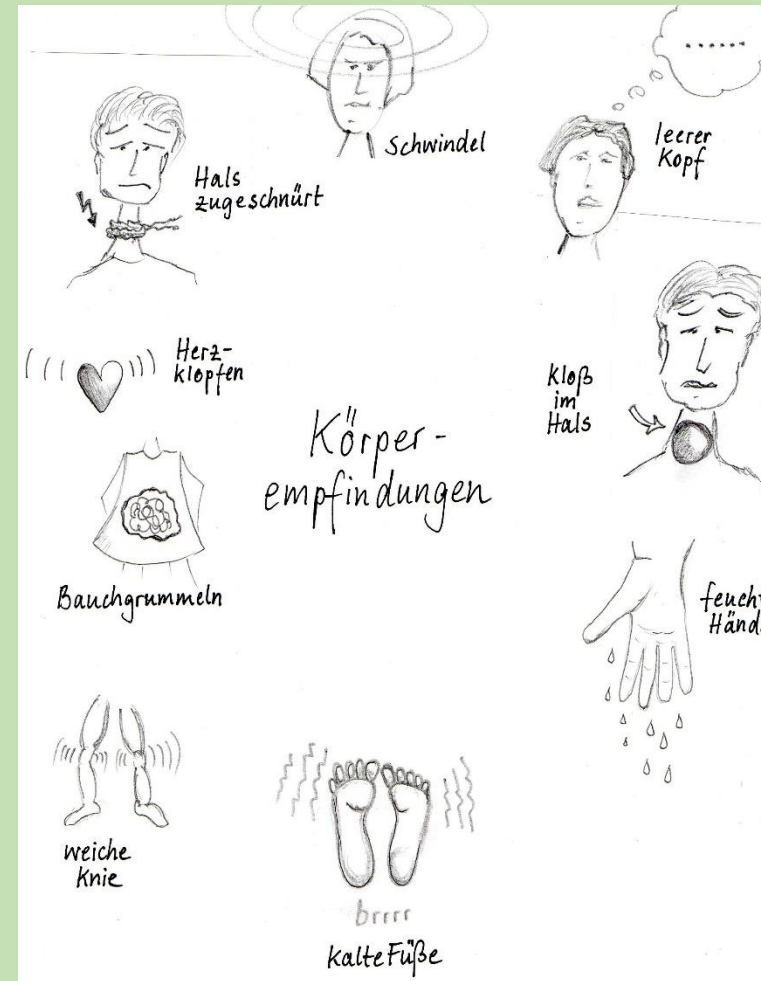 Schwindel
......
leerer
Kopf
Hals
zugeschnürt
Herz-
klopfen
Kloß
im
Hals
Körper-
empfindungen
Bauchgrummeln
feucht
Händ
weiche
Knie
brrrr
kalte Füße